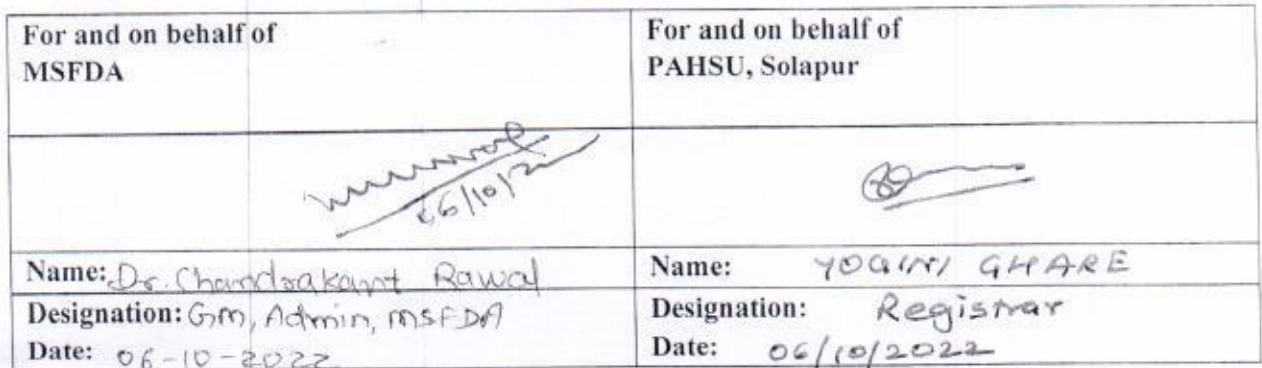 For and on behalf of
MSFDA
For and on behalf of
PAHSU, Solapur
06/10/2
Name: Dr. Chandrakant Rawal
Designation: Gm, Admin, MSFDA
Date: 06-10-2022
Name: YOGINI GHARE
Designation: Registrar
Date: 06/10/2022